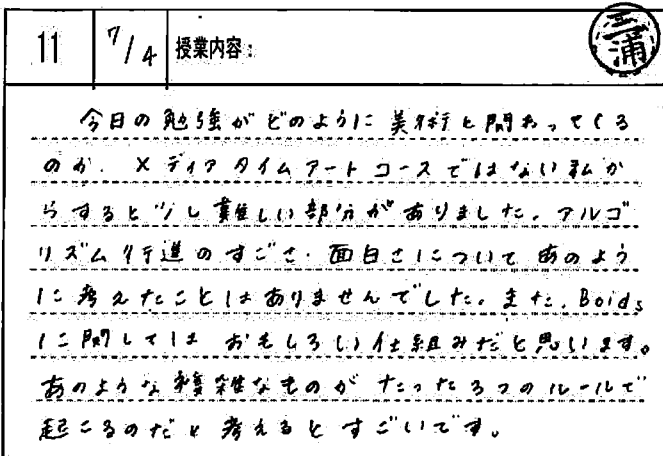 11 7/4 授業内容: 三浦
今日の勉強がどのように美術と関わってくる
のか、メディアタイムアートコースではない私か
らすると少し難しい部分がありました。アルゴ
リズム行進のすごさ・面白さについてあのよう
に考えたことはありませんでした。また、Boids
に関しては おもしろい仕組みだと思います。
あのような複雑なものが たった3つのルールで
起こるのだと考えるとすごいです。